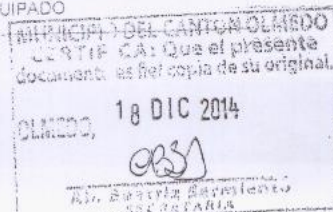 UIPADO
MUNICIPIO DEL CANTON OLMEDO
CERTIFICA: Que el presente
documento es fiel copia de su original.
18 DIC 2014
OLMEDO,
Ab. Beatriz Sarmiento
SECRETARIA